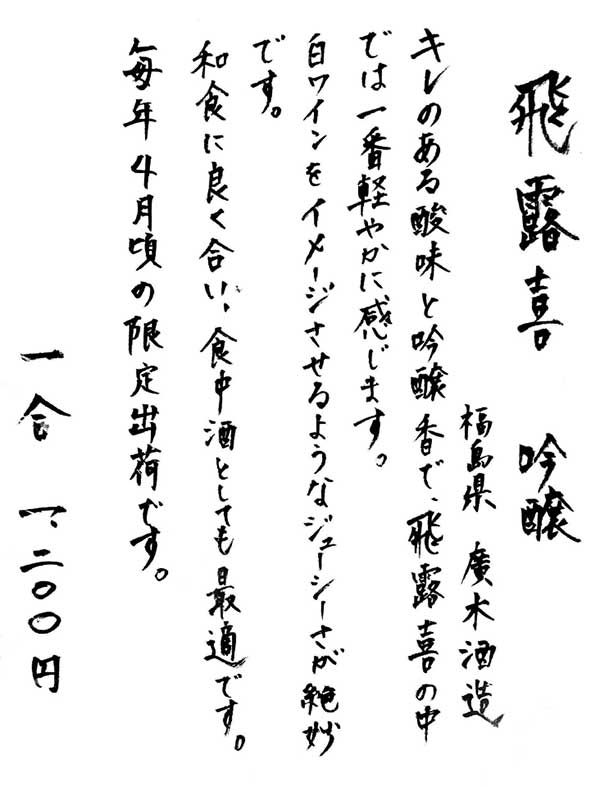 飛露喜 吟醸
福島県 廣木酒造
キレのある酸味と吟醸香で、飛露喜の中
では一番軽やかに感じます。
白ワインをイメージさせるようなジューシーさが絶妙
です。
和食に良く合い、食中酒としても最適です。
毎年4月頃の限定出荷です。
一合 一、二〇〇円